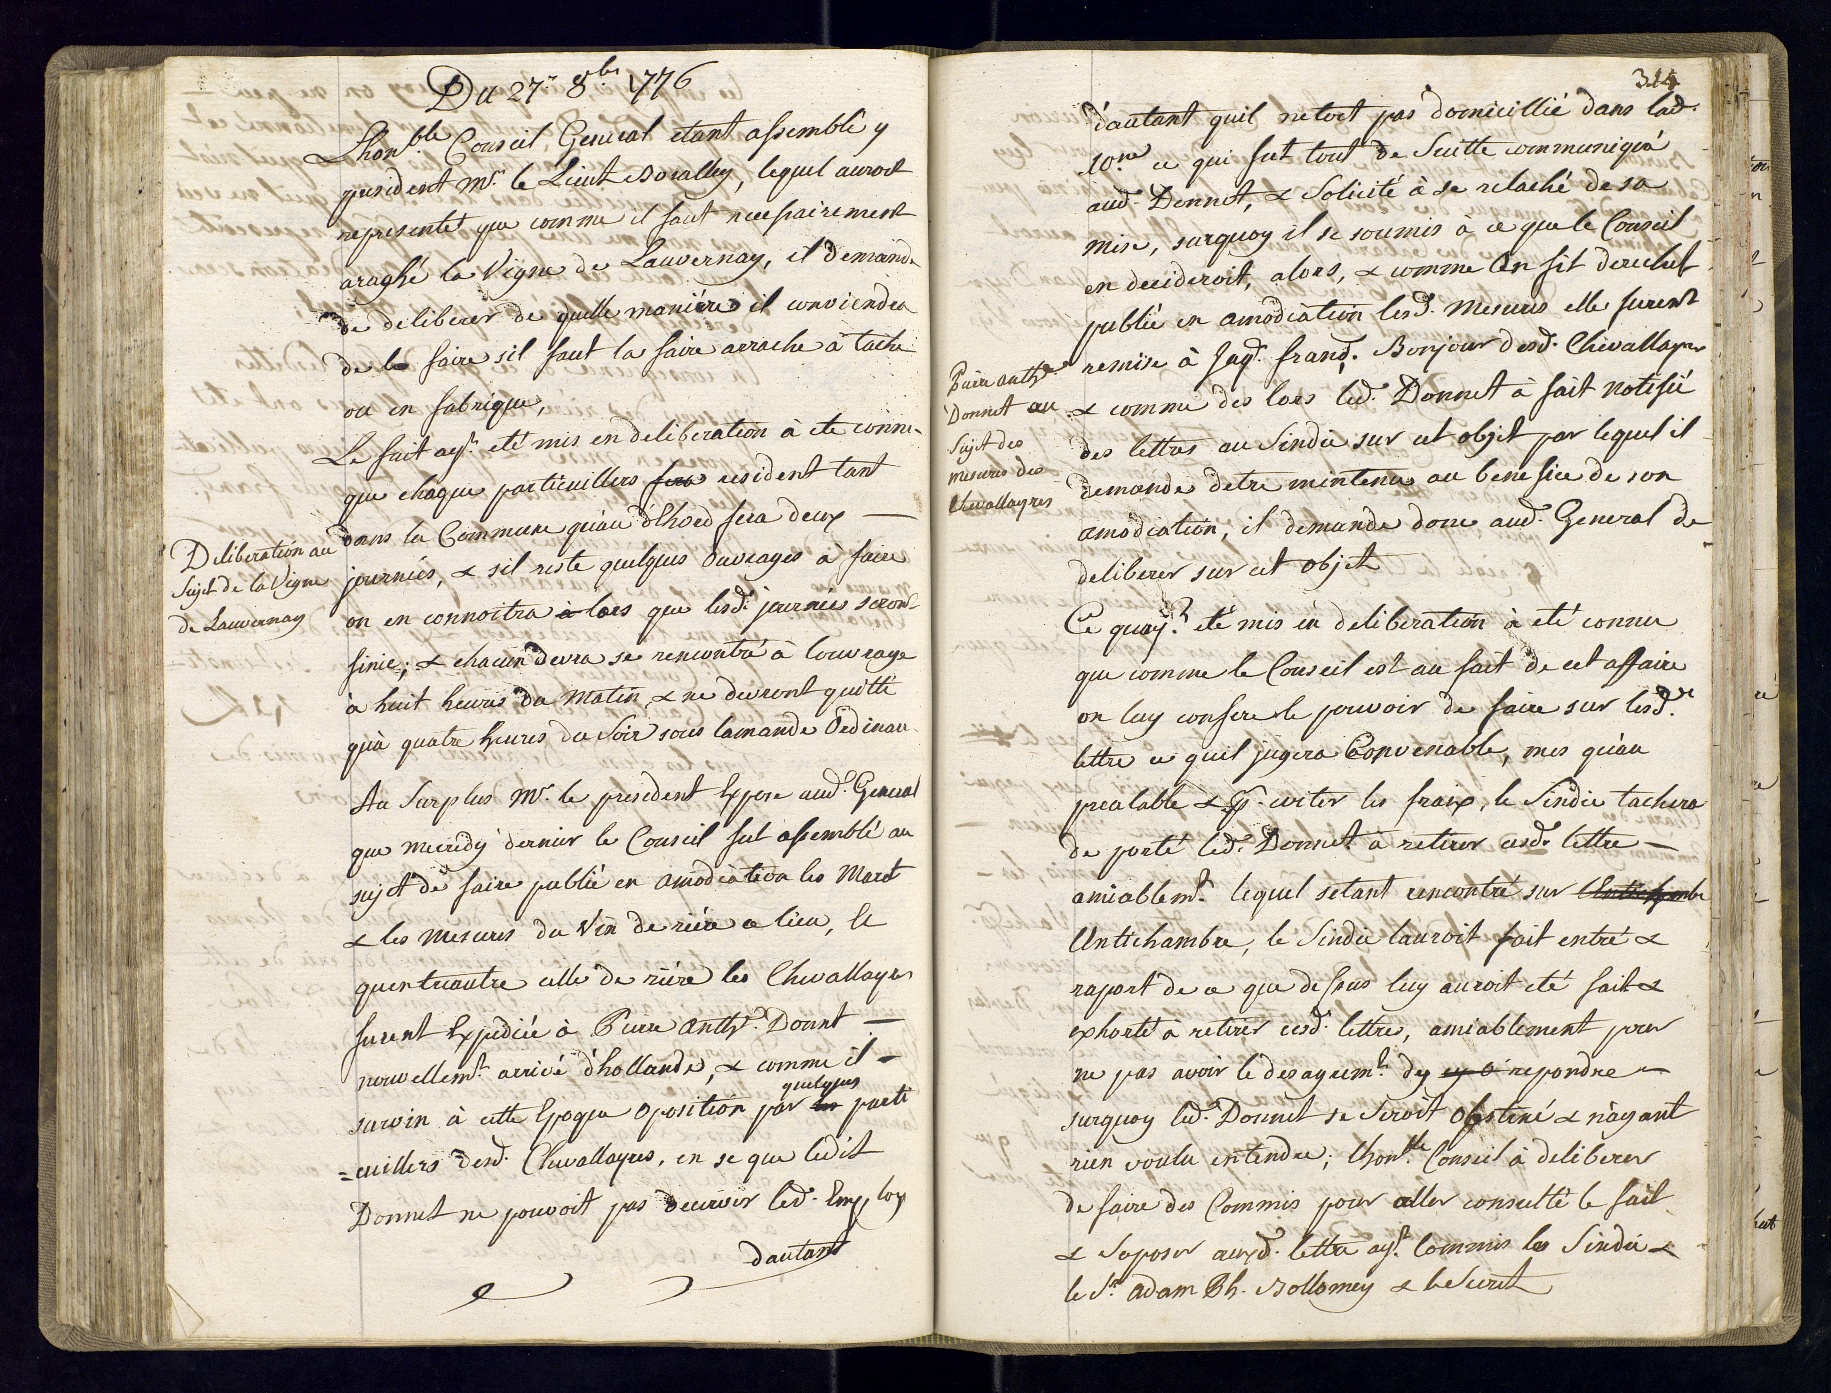 Du 27e 8bre 1776
Lhonble Conseil General etant assemblé y
president Mr. le Lieut Doralley, lequel auroit
representé que comme il faut necessairement
araché la Vigne de Lauvernay, il demande
de deliberer de quelle maniére il conviendra
de le faire sil faut la faire arrache à tache
ou en fabrique,
Le fait ayt. eté mis en deliberation à ete connu
que chaque particuillers fera resident tant
Deliberation au
Sujet de la Vigne
de Lauvernay
dans la Commune qu'au d'hors fera deux
journées, & sil reste quelques ouvrages à faire
on en connoitra à lors que lesd. journées seront
finie; & chacun devra se rencontré à louvrage
à huit heures du matin & ne devront quitté
qu'à quatre heures du Soir sous lamande Ordinau
Au Surplus Mr. le president Expose aud. General
que mecredy dernier le Conseil fut assemblé au
sujet de faire publié en amodiation les Marct
& les mesures du Vin de riére ce lieu, le
quentreautre celle de riére les Chevallayres
furent Expediée à Pierre Anthe. Donnet
nouvellemt. arrivé d'hollande, & comme il
survin à cette Epoque oposition par les quelques parti
=cuillers desd. Chevallayres, en se que ledit
Donnet ne pouvoit pas decerner led. Employ
dautant
314
d'autant quil netoit pas domicillié dans lad.
10ne ce qui fut tout de Suitte communiqué
aud. Donnet, & Solicité à se relaché de sa
mise, surquoy il se soumis à ce que le Conseil
en decideroit, alors, & comme On fit derechef
publié en amodiation lesd. Mesures elle furent
remise à Jaq. franç. Bonjour desd. Chevallayres
Pierre anthe.
Donnet au
Sujet des
mesures des
Chevallayres
& comme des lors led. Donnet à fait notifié
des lettres au Sindic sur cet objet par lequel il
demande detre mintenu au benefice de son
amodiation, il demande donc aud. General de
deliberer sur cet objet
Ce quayt. eté mis en deliberation à eté connu
que comme le Conseil est au fait de cet affaire
on luy confere le pouvoir de faire sur lesd.
lettre ce quil jugera Convenable, mes qu'au
prealable & pr. eviter les fraix, le Sindic tachera
de porté led. Donnet à retirer cesd. lettre
amiablemt. lequel setant rencontré sur lAntichambre
lAntichambre, le Sindic lauroit fait entré &
raport de ce que dessus luy auroit eté fait &
exhorté à retirer cesd. lettres, amiablement pour
ne pas avoir le desagremt. dy repondre
surquoy led. Donnet se Seroit Obstiné & nayant
rien voulu entendre; lhonble. Conseil à deliberer
de faire des Commis pour aller consulté le fait
& soposer auxd. lettre ayt. Commis les Sindic &
le Sr. adam Ph. Bollomey & le Secret